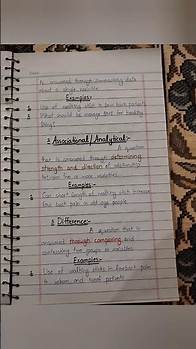 is answered through summarizing data
about a single variable
Examples:-
Use of walking stick in low back patients
What should be average fees for treating
3 Associational / Analytical:-
A question
that is answered through determining
strength and direction of relationship
between two or more variables
Examples:-
Can short length of walking stick increase
low back pain in old age people
Difference:-
A question that is
answered through comparing and
contrasting two groups or variables
Examples:-
Use of walking sticks in low back pain
in urban and rural patients